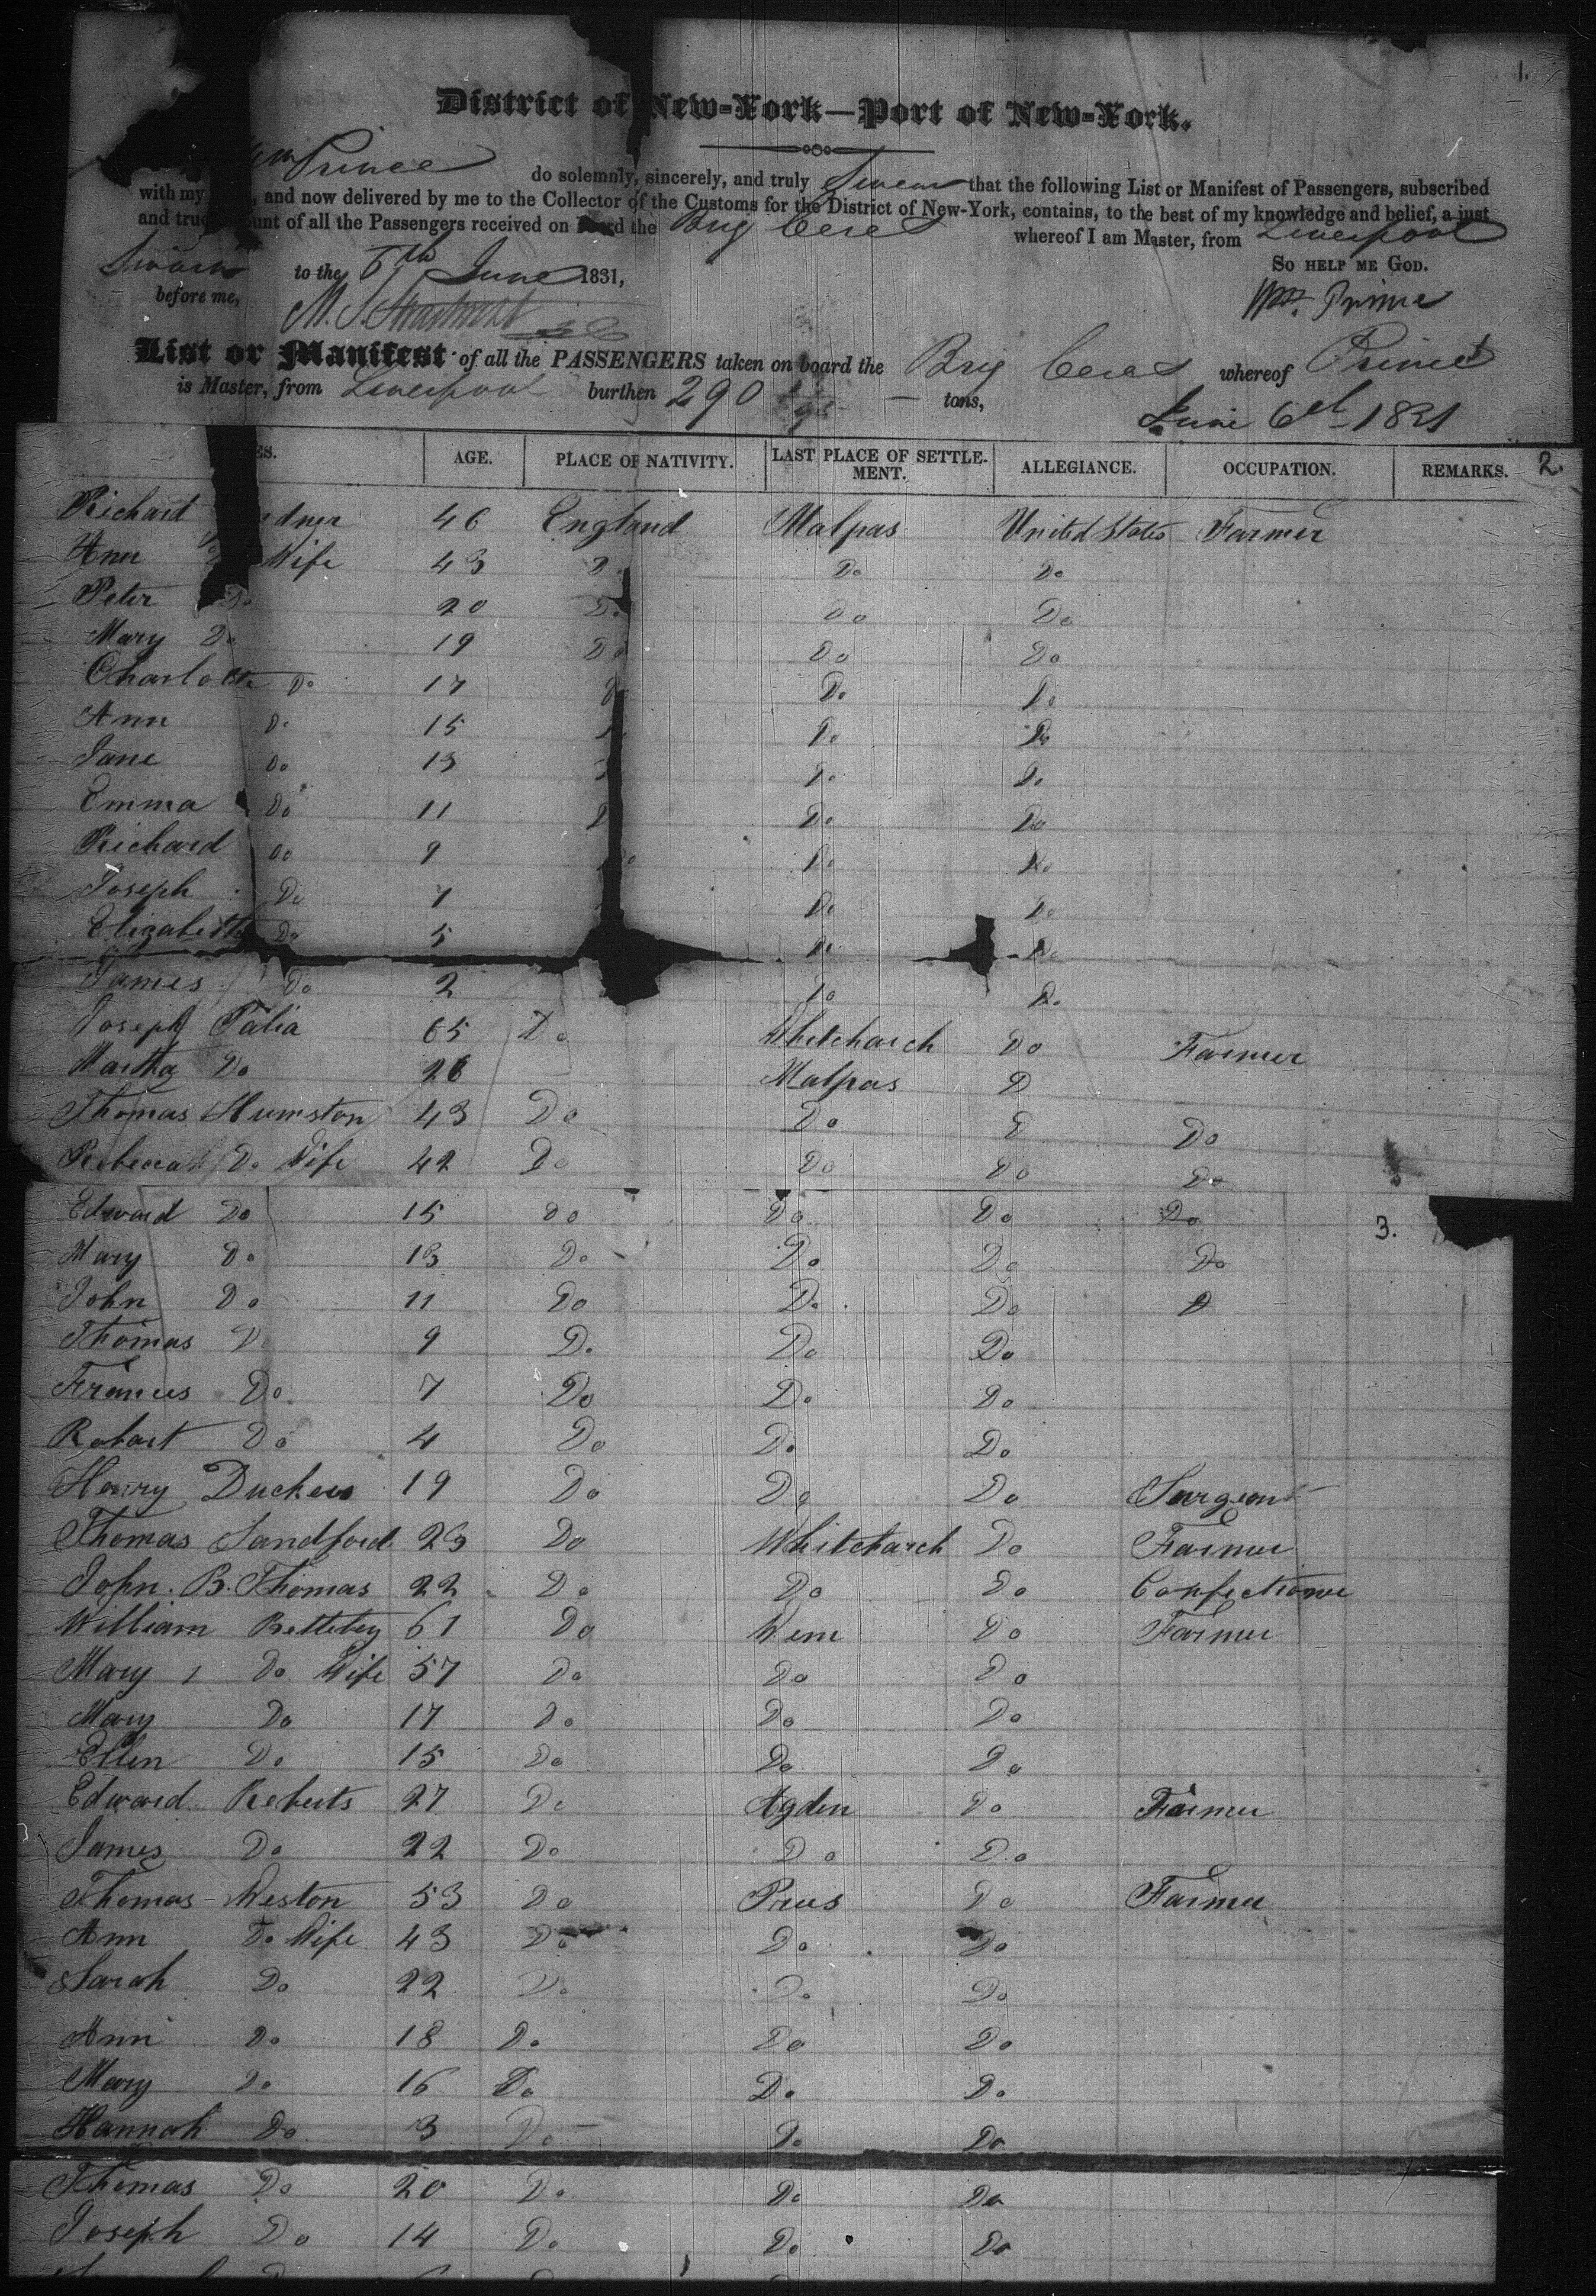 1.
District of New-York—Port of New-York.
Wm Prince do solemnly, sincerely, and truly Swear that the following List or Manifest of Passengers, subscribed
with my , and now delivered by me to the Collector of the Customs for the District of New-York, contains, to the best of my knowledge and belief, a just
and true unt of all the Passengers received on board the Brig Ceres whereof I am Master, from Liverpool
Sworn to the 6th June 1831, SO HELP ME GOD.
before me, Wm. Prince
List or Manifest of all the PASSENGERS taken on board the Brig Ceres whereof Prince
is Master, from Liverpool burthen 290 tons,
June 6th 1831
ES. AGE. PLACE OF NATIVITY. LAST PLACE OF SETTLE-MENT. ALLEGIANCE. OCCUPATION. REMARKS. 2.
Richard dner 46 England Malpas United States Farmer
Ann Wife 43 D Do Do
Peter Do 20 Do Do Do
Mary Do 19 Do Do Do
Charlotte Do 17 Do Do Do
Ann Do 15 Do Do
Jane Do 13 Do Do
Emma Do 11 D Do Do
Richard Do 9 Do Do
Joseph Do 7 Do Do
Elizabeth Do 5 Do Do
James Do 2 Do Do
Joseph Do 65 Do Whitcharch Do Farmer
Martha Do 26 Malpas D
Thomas Humston 43 Do Do D Do
Rebecca Do Wife 42 Do Do Do Do
Edward Do 15 Do Do Do Do
3.
Mary Do 13 Do Do Do Do
John Do 11 Do Do Do D
Thomas D 9 Do Do Do
Frances Do 7 Do Do Do
Robart Do 4 Do Do Do
Henry Duckers 19 Do Do Do Surgeon
Thomas Sandford 23 Do Whitcharch Do Farmer
John. B. Thomas 22 Do Do Do Confectioner
William 61 Do Wem Do Farmer
Mary Do Wife 57 Do Do Do
Mary Do 17 Do Do Do
Ellen Do 15 Do Do Do
Edward Roberts 27 Do Agden Do Farmer
James Do 22 Do Do Do
Thomas Weston 53 Do Prees Do Farmer
Ann Do Wife 43 Do Do Do
Sarah Do 22 Do Do Do
Ann Do 18 Do Do Do
Mary Do 16 Do Do Do
Hannah Do 3 Do Do Do
Thomas Do 20 Do Do Do
Joseph Do 14 Do Do Do